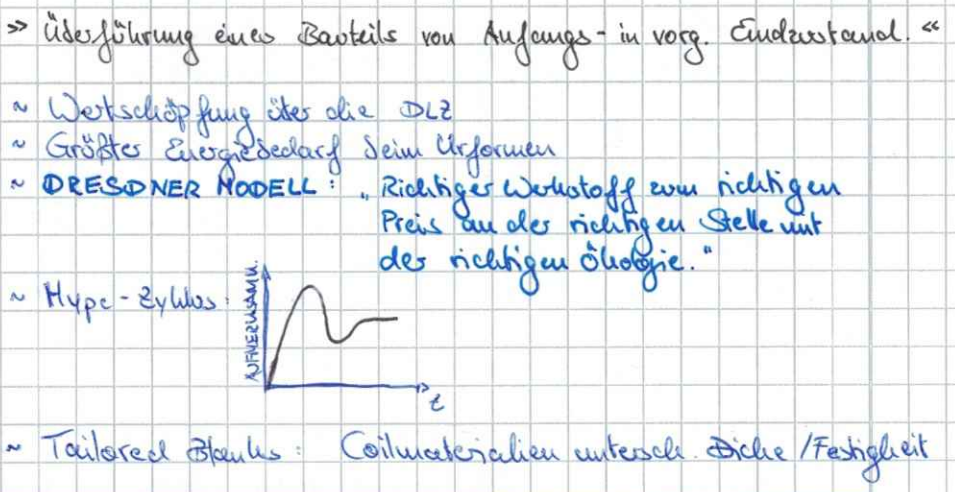 » Überführung eines Bauteils von Anfangs- in vorg. Endzustand. «
~ Wertschöpfung über die DLZ
~ Größter Energiebedarf beim Urformen
~ DRESDNER MODELL: „Richtiger Werkstoff zum richtigen
Preis an der richtigen Stelle mit
der richtigen Ökologie."
~ Hype-Zyklus:
AUFMERKSAMK.
t
~ Tailored Blanks: Coilmaterialien untersch. Dicke /Festigkeit